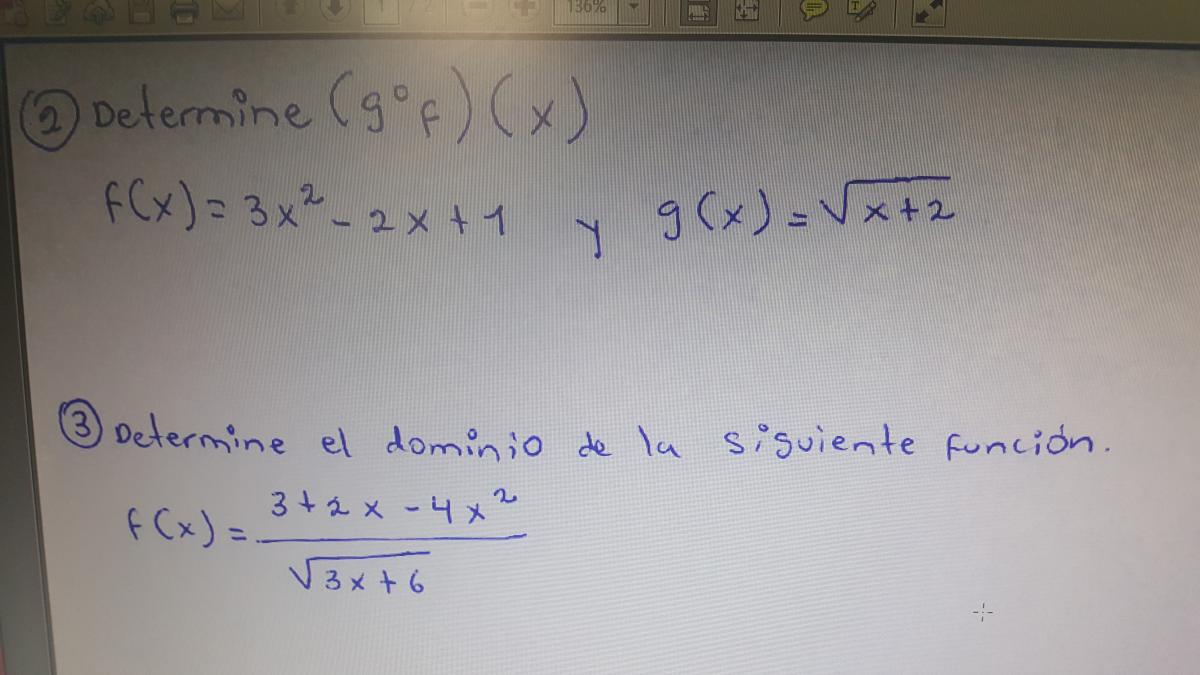 1 / 2 136%
② Determine (g°f)(x)
f(x) = 3x² - 2x + 1 y g(x) = √x+2
③ Determine el dominio de la siguiente función.
f(x) = 3+2x-4x² / √3x+6